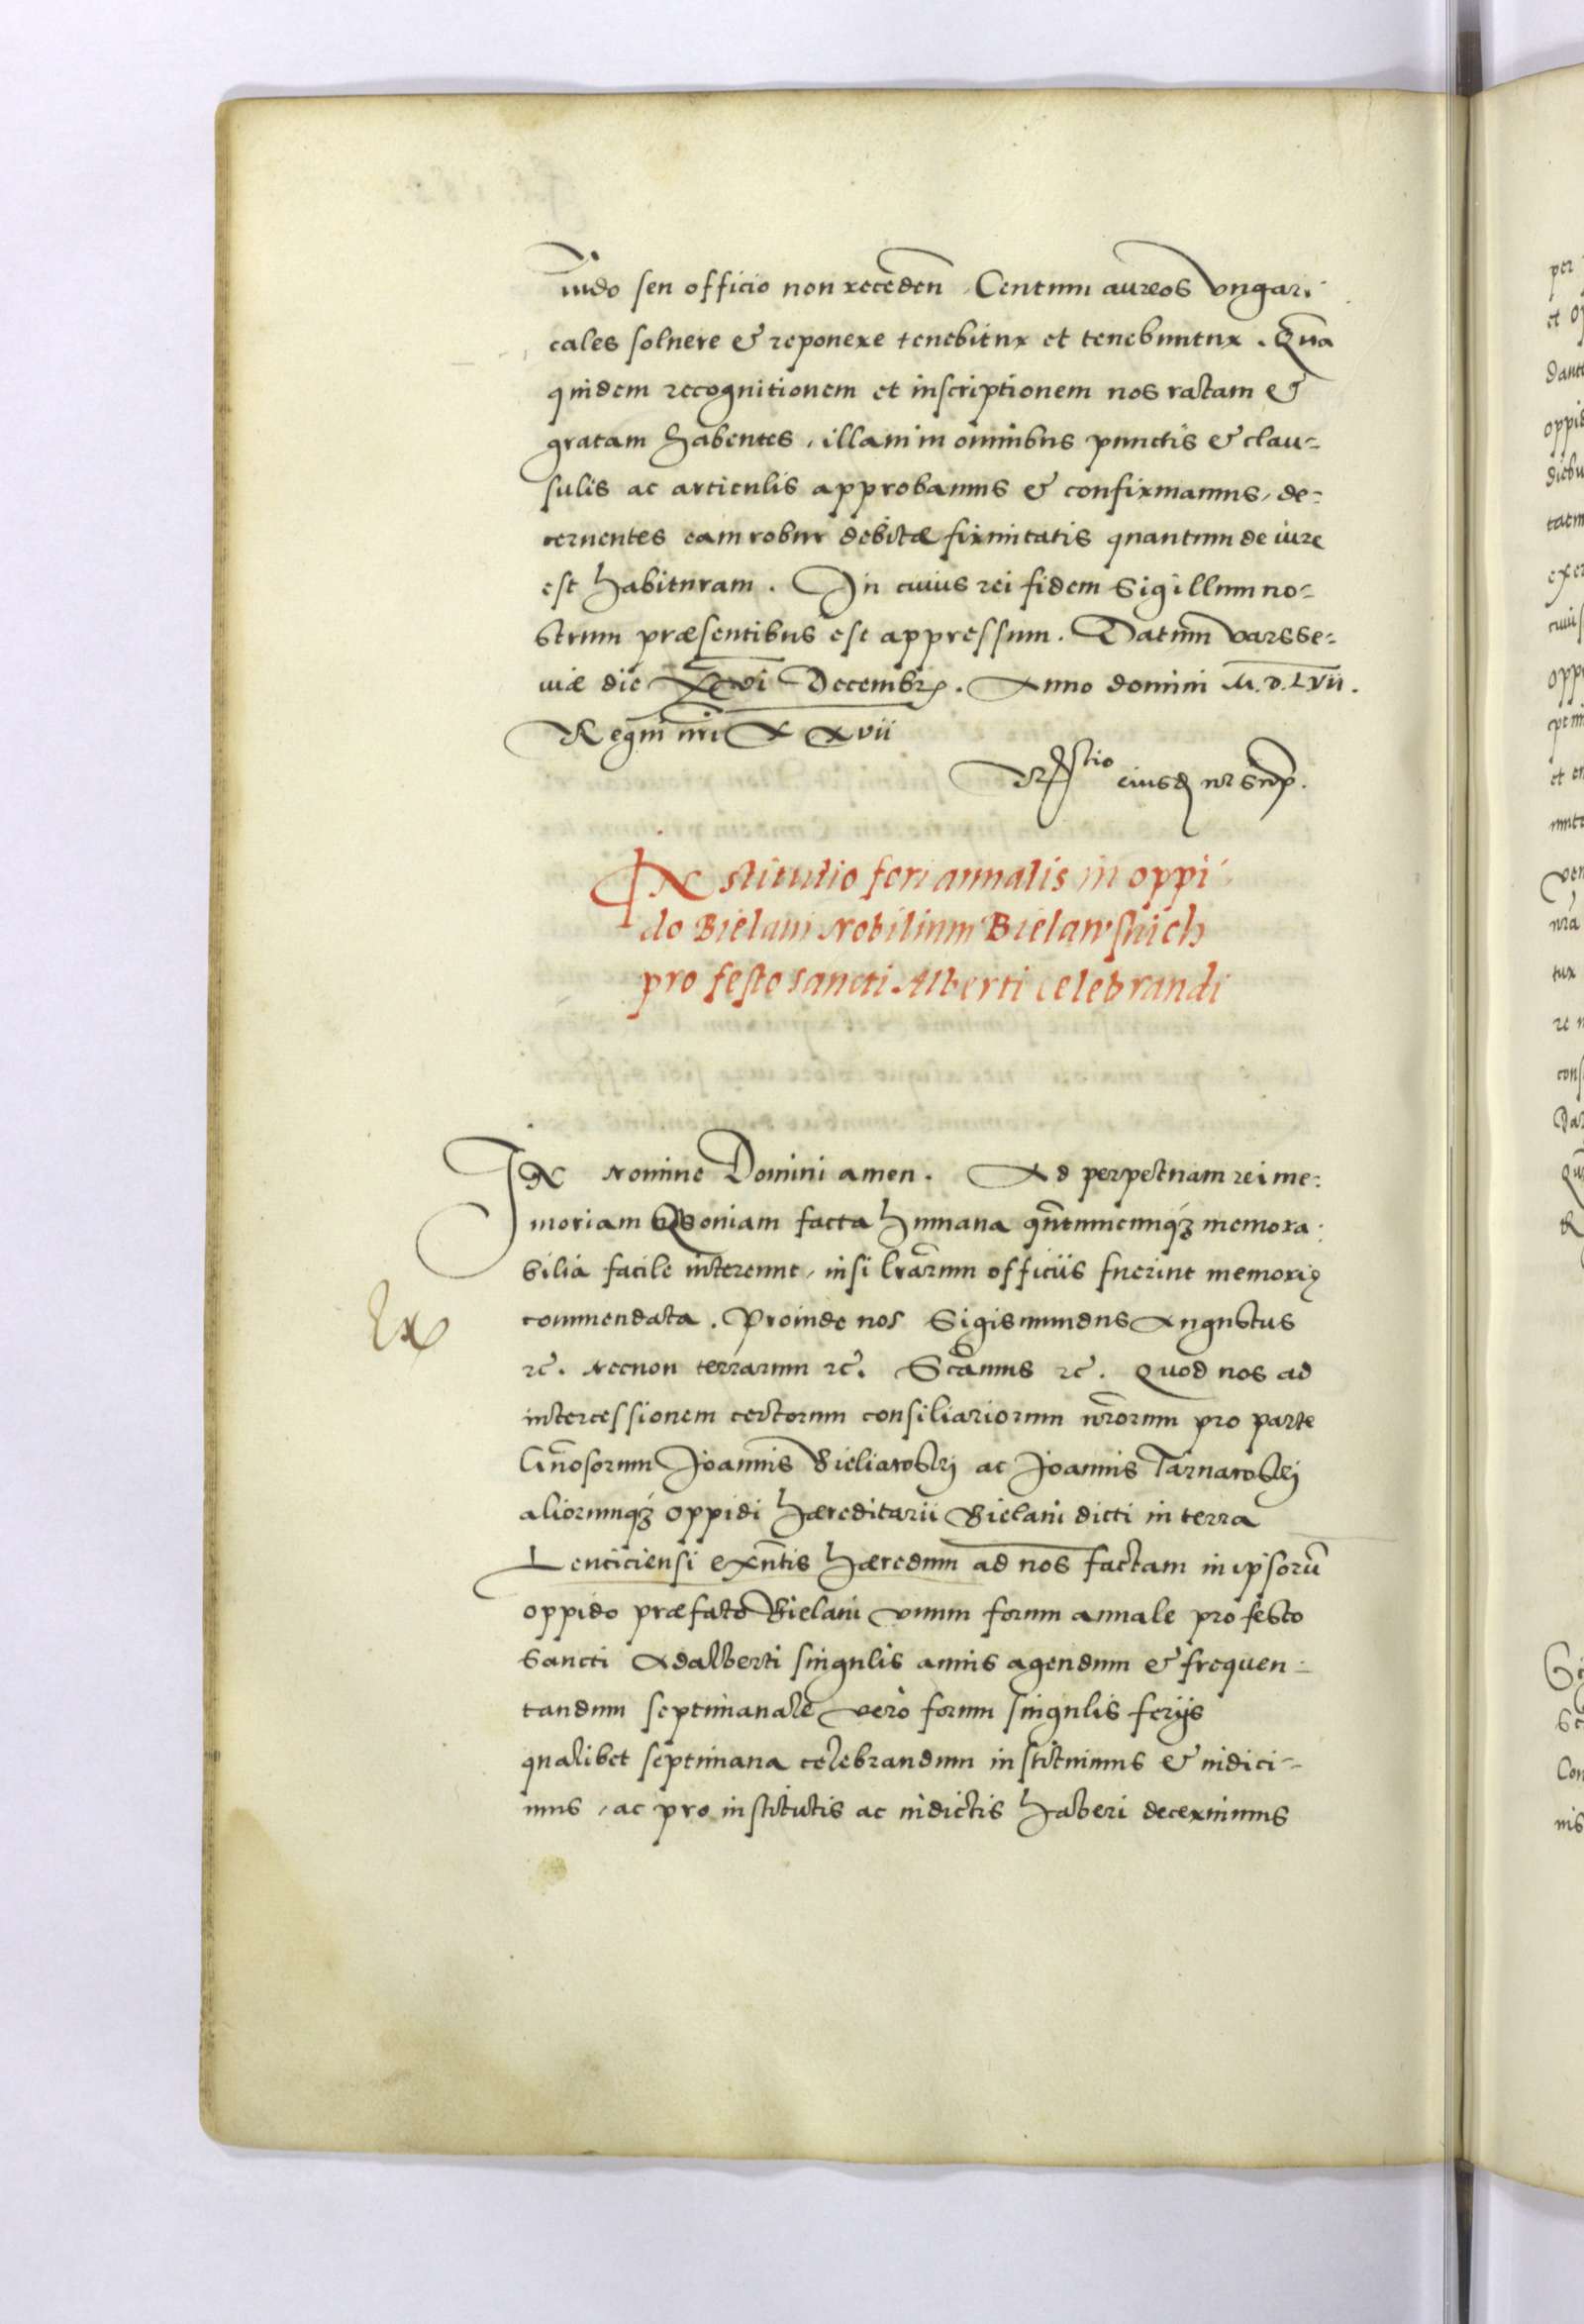 iudo seu officio non receden̄ Centum aureos vngari
cales soluere & reponere tenebitur et tenebuntur. Quā
quidem recognitionem et inscriptionem nos ratam &
gratam habentes, illam in omnibus punctis & clau-
sulis ac articulis approbamus & confirmamus, de-
cernentes eam robur debitæ firmitatis quantum de iure
est habituram. In cuius rei fidem Sigillum no-
strum præsentibus est appressum. Datum varsse-
uiæ die Decembr. Anno domini M.D.LVii.
Regni nri XXvii
eiusd
INstitutio fori annalis in oppi
do Bielani Nobilium Bielawskich
pro festo sancti Alberti celebrandi
IN Nomine Domini amen. Ad perpetuam rei me-
moriam Quoniam facta humana qn̄tumcunq3 memora
bilia facile intereunt, nisi lrārum officiis fuerint memoriæ
Ex
commendata. Proinde nos Sigismundus Augustus
rc̄. Necnon terrarum rc̄. Scāmus rc̄. Quod nos ad
intercessionem certorum consiliariorum nrōrum pro parte
Gn̄osorum Joannis Bieliawski ac Joannis Tarnawski
aliorumq3 oppidi hæreditarii Bielani dicti in terra
Lenciciensi exn̄tis hæredum ad nos factam in ipsorū
oppido præfato Bielani vnum forum annale pro festo
Sancti Adalberti singulis annis agendum & frequen-
tandum septimanale vero forum singulis ferijs
qualibet septimana celebrandum instituimus & indici-
mus, ac pro institutis ac indictis haberi decernimus